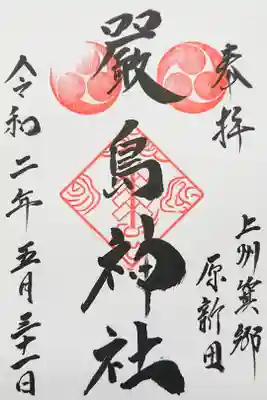 奉拝
上州簔郷
原新田
厳島神社
令和二年五月三十一日